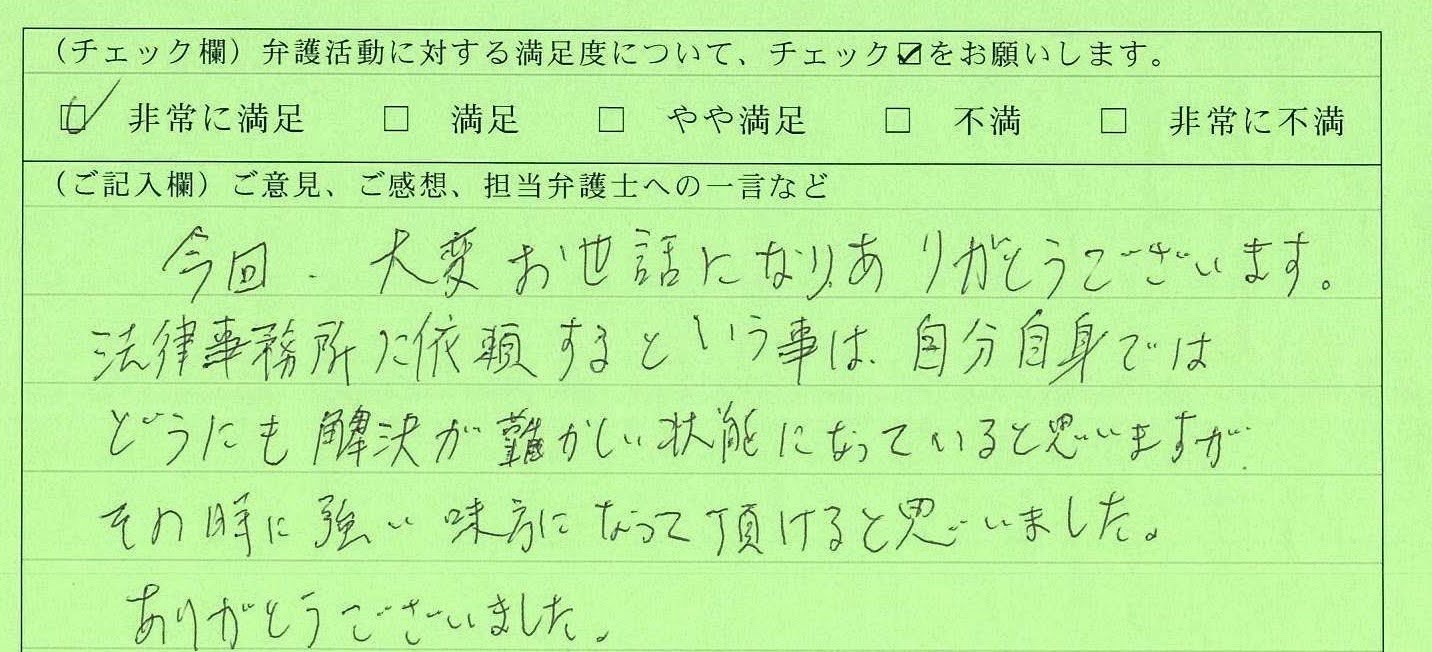 (チェック欄) 弁護活動に対する満足度について、チェック☑をお願いします。
☑ 非常に満足 □ 満足 □ やや満足 □ 不満 □ 非常に不満
(ご記入欄) ご意見、ご感想、担当弁護士への一言など
今回、大変お世話になり、ありがとうございます。
法律事務所に依頼するという事は、自分自身では
どうにも解決が難かしい状態になっていると思いますが、
その時に強い味方になって頂けると思いました。
ありがとうございました。